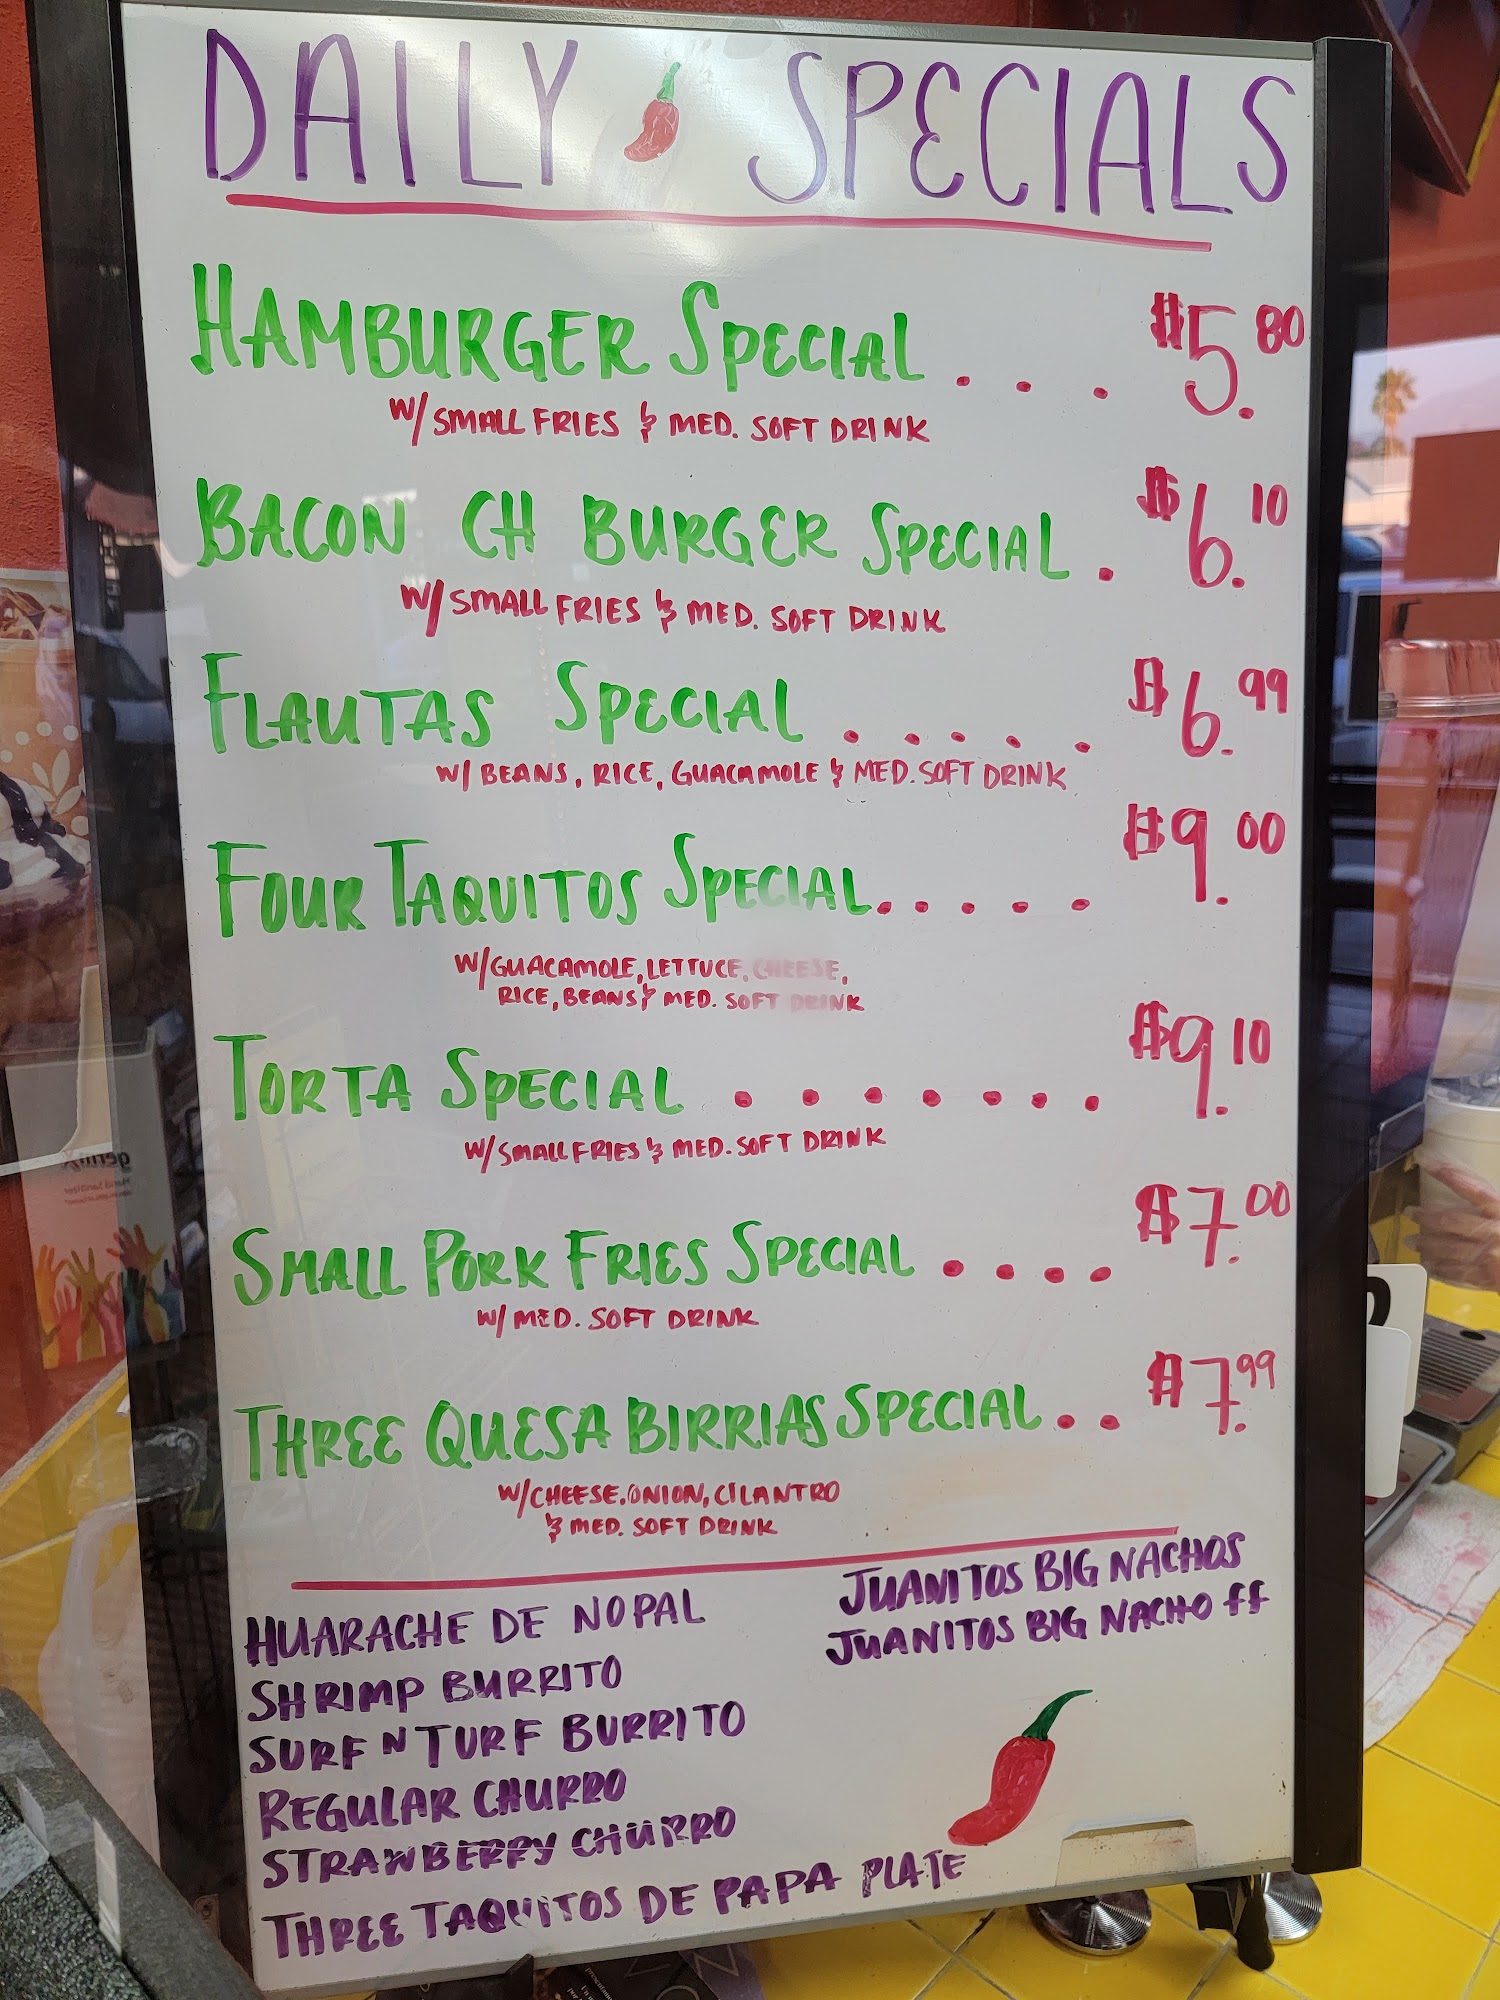 DAILY SPECIALS
HAMBURGER SPECIAL . . . $5.80
W/ SMALL FRIES & MED. SOFT DRINK
BACON CH BURGER SPECIAL . $6.10
W/ SMALL FRIES & MED. SOFT DRINK
FLAUTAS SPECIAL . . . . . $6.99
W/ BEANS, RICE, GUACAMOLE & MED. SOFT DRINK
FOUR TAQUITOS SPECIAL. . . . . $9.00
W/GUACAMOLE, LETTUCE, CHEESE,
RICE, BEANS & MED. SOFT DRINK
TORTA SPECIAL . . . . . . . $9.10
W/ SMALL FRIES & MED. SOFT DRINK
SMALL PORK FRIES SPECIAL . . . . $7.00
W/ MED. SOFT DRINK
THREE QUESA BIRRIAS SPECIAL . . $7.99
W/CHEESE, ONION, CILANTRO
& MED. SOFT DRINK
HUARACHE DE NOPAL
SHRIMP BURRITO
SURF N TURF BURRITO
REGULAR CHURRO
STRAWBERRY CHURRO
THREE TAQUITOS DE PAPA PLATE
JUANITOS BIG NACHOS
JUANITOS BIG NACHO FF
germX
Hand Sanitizer